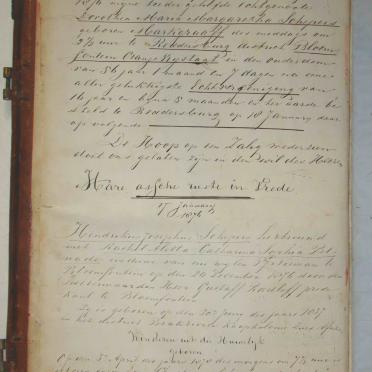 1876 mijne teeder geliefde Echtgenoote
Dorothea Maria Margaretha Schepers
geboren Markgraaff des middags om
2½ uur te Reddersburg district Bloem
fontein Oranje Vrystaat in den ouderdom
van 56 jaar 1 maand en 7 dagen na eene
aller gelukkigste Echtvereeniging van
16 jaar en byna 5 maanden en ter aarde be
steld te Reddersburg op 18 January daar
op volgende
De Hoop op een Zalig wedersien
doet ons gelaten zijn in den Wil des Heeren
Hare assche ruste in Vrede
17 January
1876
Hendrik Josephus Schepers hertrouwd
met Rachel Aletta Catharina Sophia
weduwe van
Bloemfontein op den December 1876 door den
Weleerwaarden Heer Gustaff Radloff predi
kant te Bloemfontein
Zij is geboren op den Juny des jaars 1837
in het district Kaapkolonie Zuid Afrika
Kinderen uit dit Huwelijk
geboren
Op den 5e April des jaars 1878 des morgens om 7½ uur is